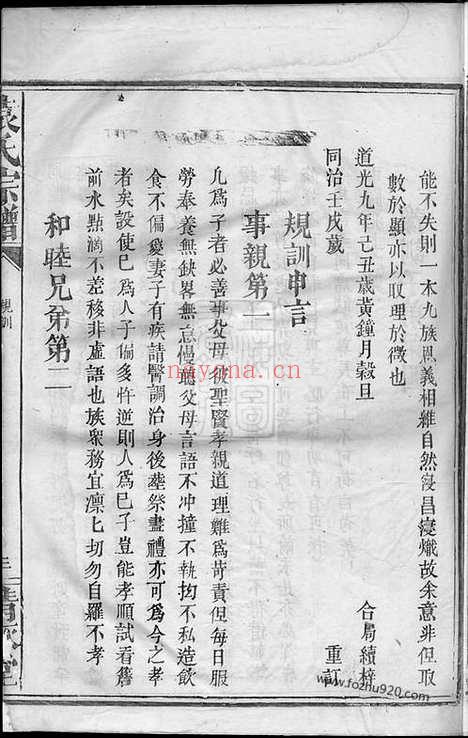 能不失則一本九族恩義相維自然浸昌寖熾故余意非但取
數於顯亦以取理於微也
道光九年己丑歲黃鐘月穀旦
合局續梓
同治壬戌歲
重訂
規訓申言
事親第一
凡爲子者必善事父母彼聖賢孝親道理難爲苛責但每日服
勞奉養無缺畧無怠慢聽父母言語不冲撞不執拗不私造飲
食不偏愛妻子有疾請醫調治身後葬祭盡禮亦可爲今之孝
者矣設使已爲人子偏多忤逆則人爲已子豈能孝順試看簷
前水點滴不差移非虛語也族衆務宜凜匕切勿自羅不孝
和睦兄弟第二
袁氏宗譜
規訓
nayona.com
www.fozhu920.com